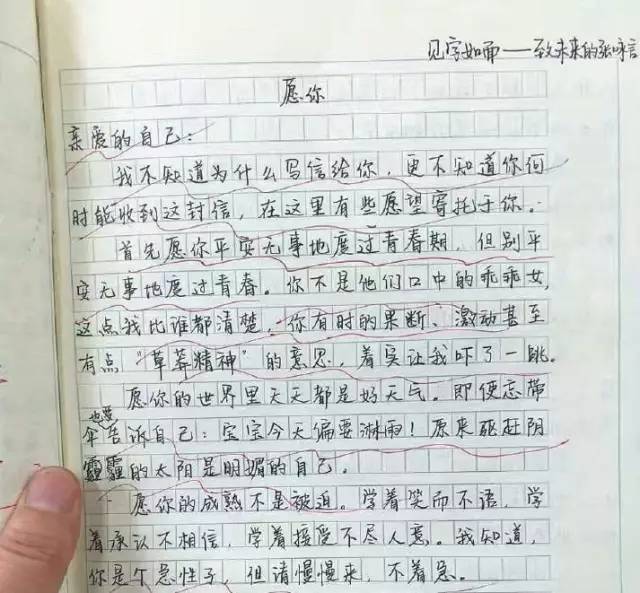 见字如面——致未来的张咏言
愿你
亲爱的自己：
我不知道为什么写信给你，更不知道你何
时能收到这封信，在这里有些愿望寄托于你。
首先愿你平安无事地度过青春期，但别平
安无事地度过青春。你不是他们口中的乖乖女，
这点我比谁都清楚，你有时的果断、激动甚至
有点“草莽精神”的意思，着实让我吓了一跳。
愿你的世界里天天都是好天气。即使忘带
也要
伞告诉自己：宝宝今天偏要淋雨！原来驱赶阴
霾的太阳是明媚的自己。
愿你的成熟不是被迫。学着笑而不语，学
着承认不相信，学着接受不尽人意。我知道，
你是个急性子，但请慢慢来，不着急。